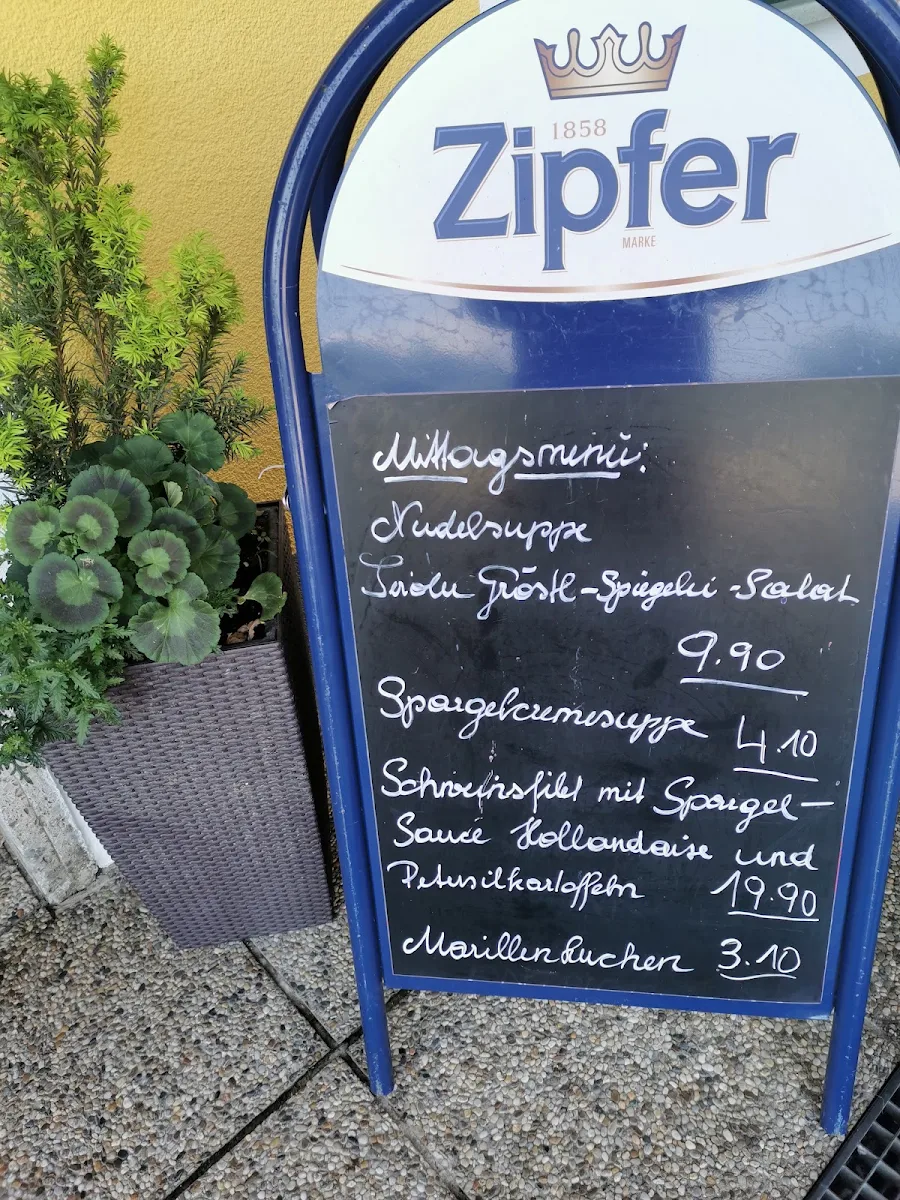 1858
Zipfer
MARKE
Mittagsmenü:
Nudelsuppe
Tiroler Gröstl-Spiegelei-Salat
9.90
Spargelcremesuppe 4.10
Schweinsfilet mit Spargel-
Sauce Hollandaise und
Petersilkartoffeln 19.90
Marillenkuchen 3.10